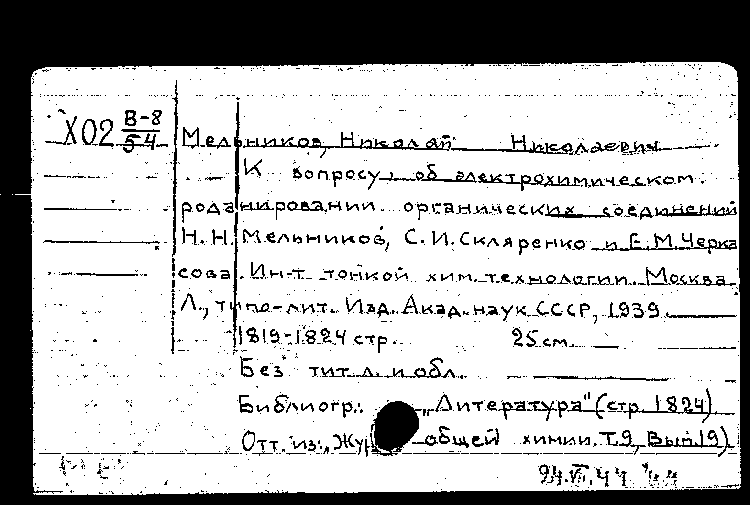 X02 В-8/54
Мельников, Николай Николаевич
К вопросу об электрохимическом
роданировании органических соединений
Н.Н. Мельников, С.И. Скляренко и Е.М. Черка
сова. Ин-т тонкой хим. технологии. Москва.
Л., типо-лит. Изд. Акад. наук СССР, 1939.
1819-1824 стр. 25 см.
Без тит. л. и обл.
Библиогр.: „Литература" (стр. 1824)
Отт. из: „Жур общей химии. Т.9, Вып. 19)